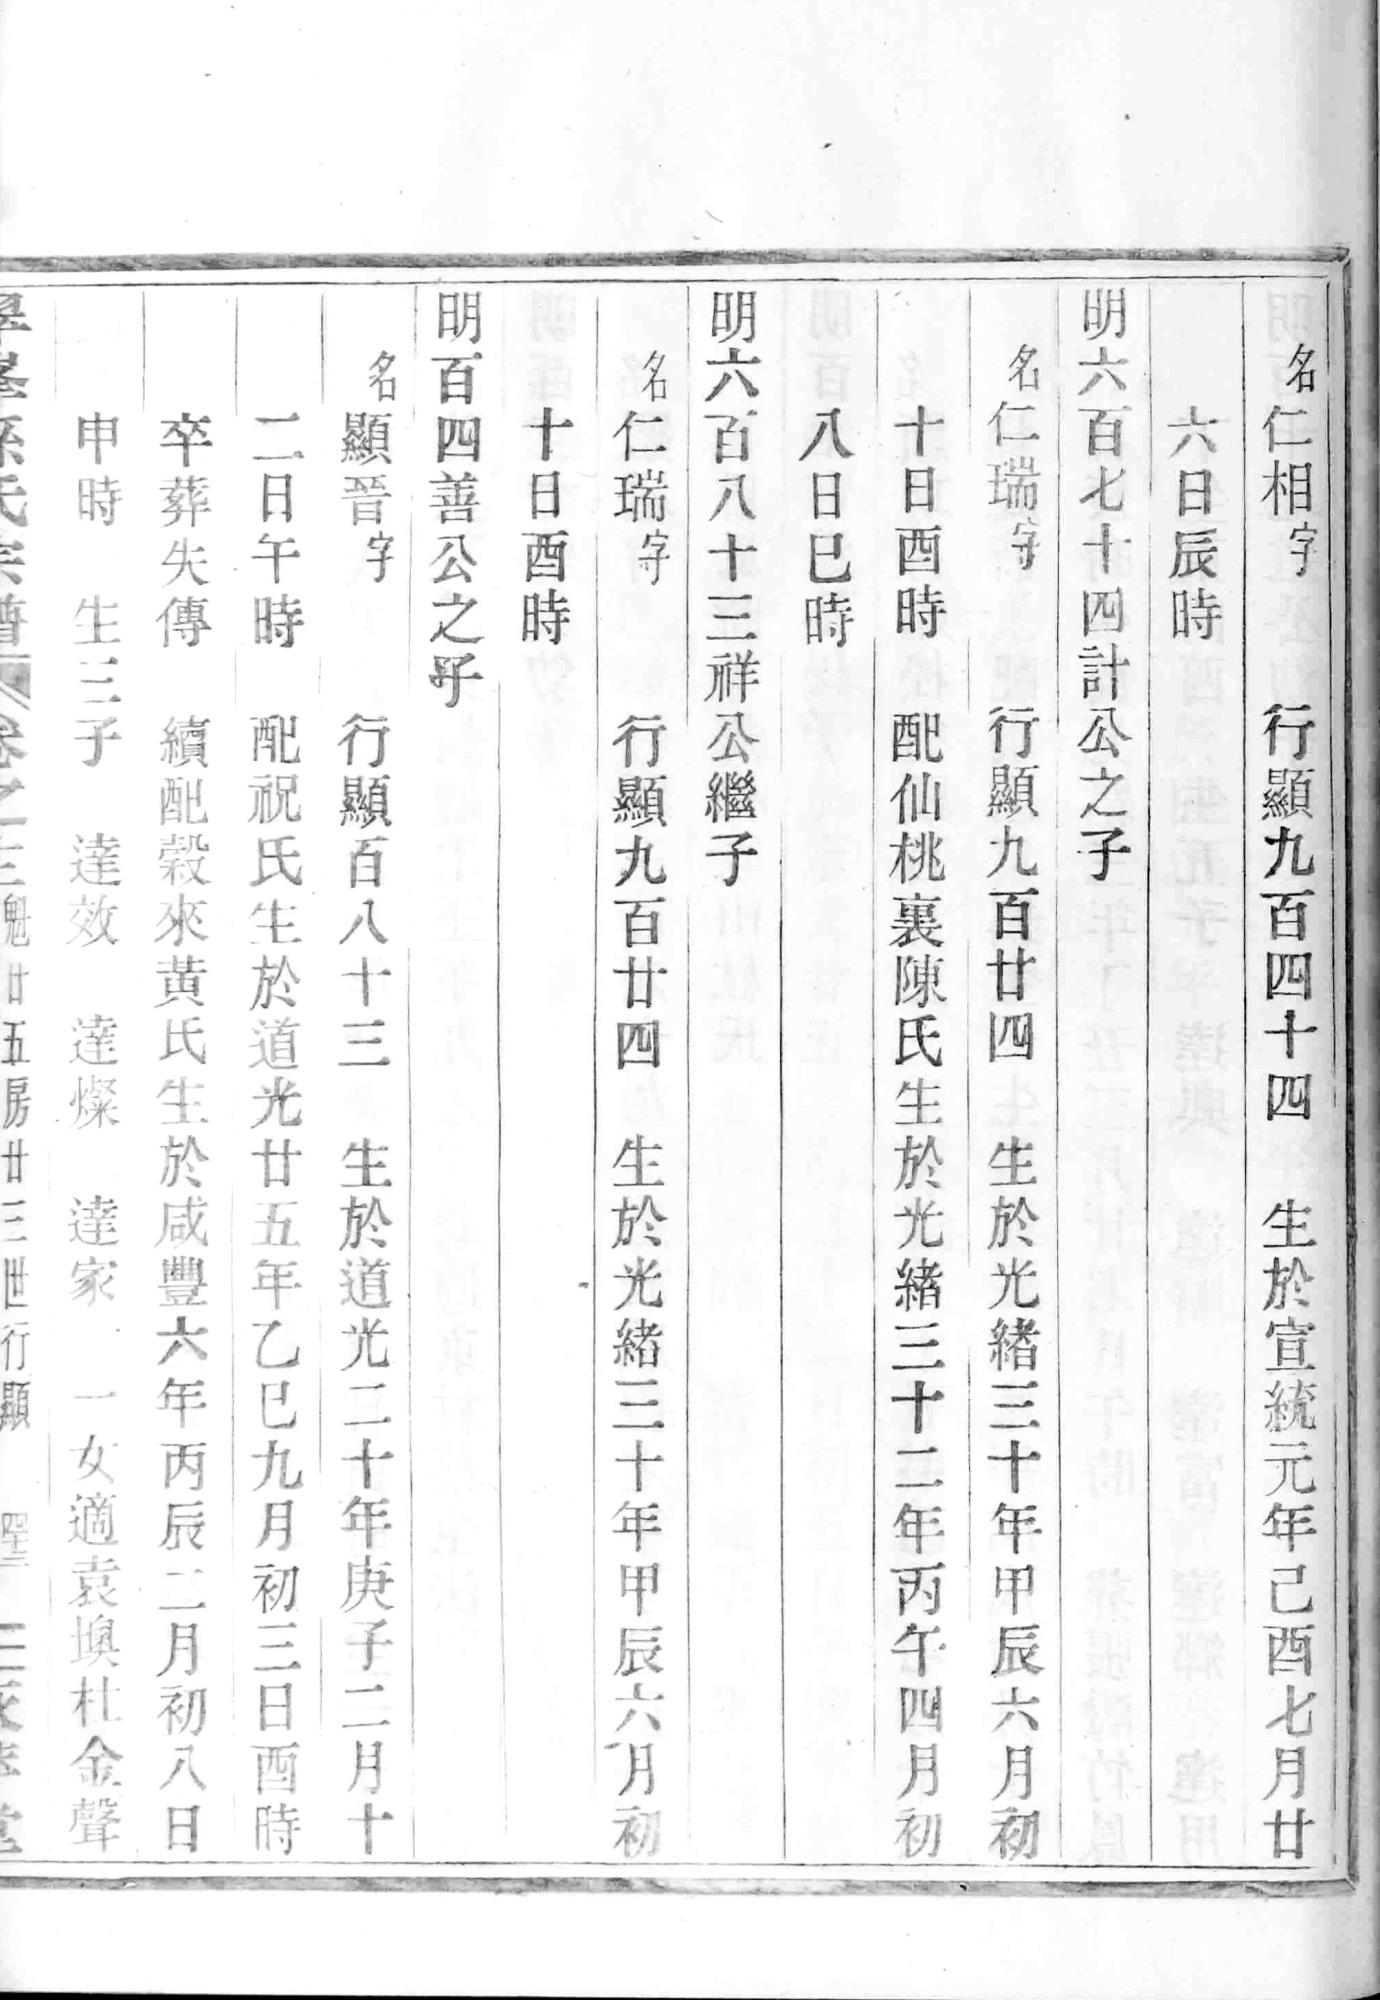 名仁相字 行顯九百四十四 生於宣統元年己酉七月廿
六日辰時
明六百七十四計公之子
名仁瑞字 行顯九百廿四 生於光緒三十年甲辰六月初
十日酉時 配仙桃裏陳氏生於光緒三十二年丙午四月初
八日巳時
明六百八十三祥公繼子
名仁瑞字 行顯九百廿四 生於光緒三十年甲辰六月初
十日酉時
明百四善公之子
名顯晉字 行顯百八十三 生於道光二十年庚子二月十
二日午時 配祝氏生於道光廿五年乙巳九月初三日酉時
卒葬失傳 續配穀來黃氏生於咸豐六年丙辰二月初八日
申時 生三子 達效 達燦 達家 一女適袁墺杜金聲
孫氏宗譜 卷之 魁廿五房廿三世行顯 四十三 堂